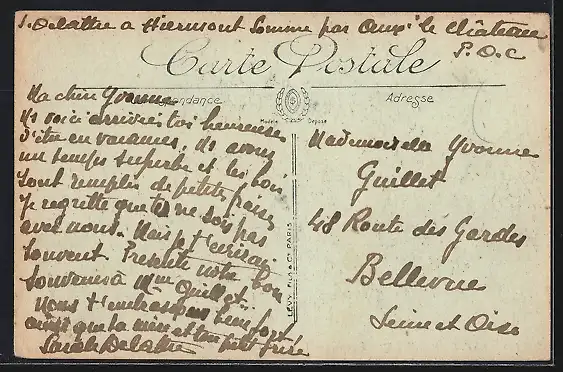 S. Delattre a Hiermont Somme par Auxi le Château
P. D. C
Carte Postale
Correspondance
Adresse
Ma chère Yvonne
Ns voici arrivées très heureuses
d'être en vacances. Ns avons
un temps superbe et les bois
sont remplis de petites fraises
Je regrette que tu ne sois pas
avec nous. Mais je t'écrirai
souvent. Presente notre bon
souvenir à Mme Guillet.
Nous t'embrassons bien fort
ainsi que ta mère et ton petit frère
Sarah Delattre
LEVY FILS & Cie PARIS
Mademoiselle Yvonne
Guillet
48 Route des Gardes
Bellevue
Seine et Oise